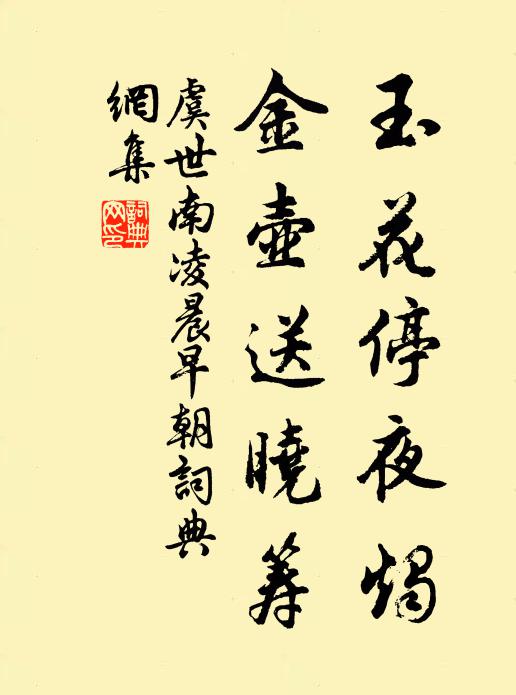 玉花停夜燭
金壺送曉筹
虞世南凌晨早朝詞典
網集
詞典網印